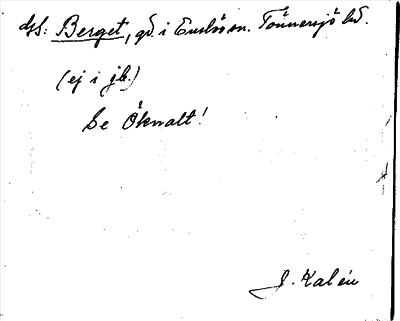 Hl: Berget, gd. i Enslöv sn. Tönnersjö hd.
(ej i jb.)
Se Öknalt!
J. Kalén